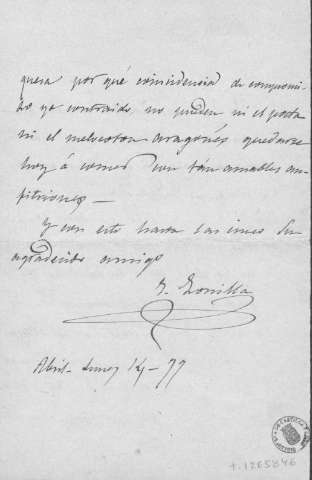 quesa por qué coincidencia de compromi-
so ya contraido no pueden ni el poeta
ni el melocoton aragonés quedarse
hoy á comer con tán amables an-
fitriones —
Y con esto hasta las cinco Su
agradecido amigo
J. Zorrilla
Abril - Lunes 14 - 77
t. 1265846